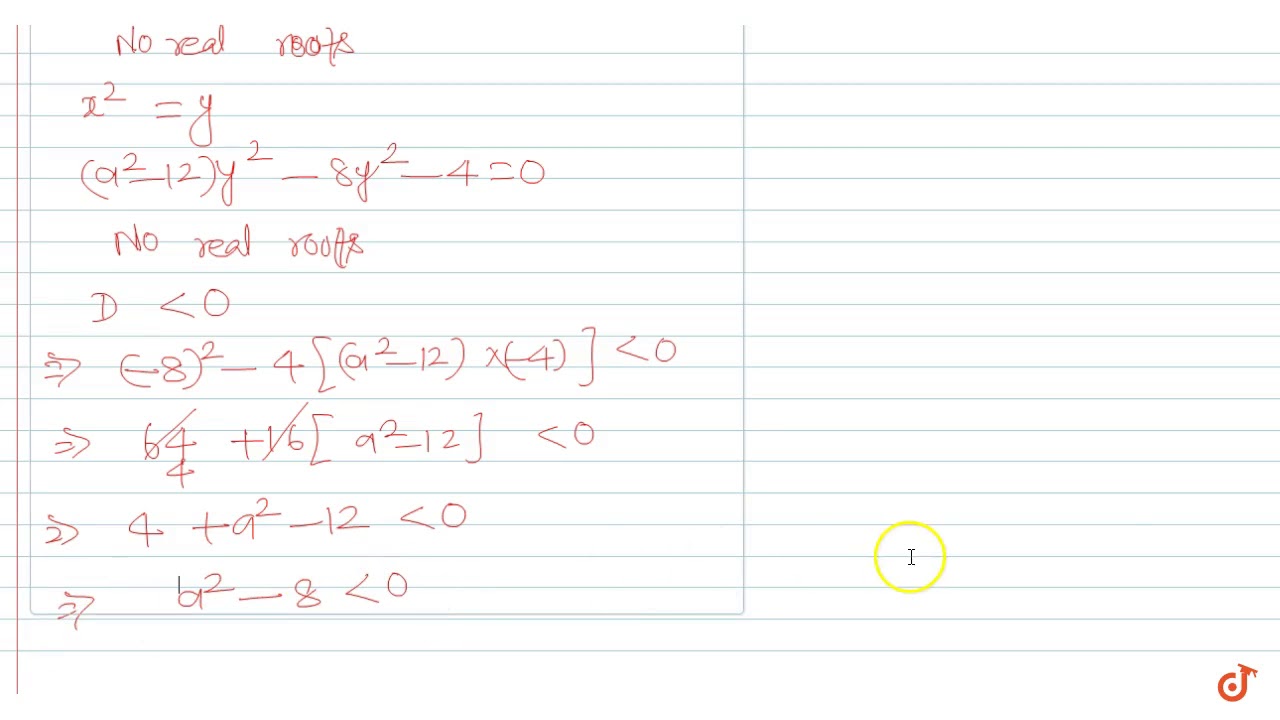 No real roots
x² = y
(a²-12)y² - 8y² - 4 = 0
No real roots
D < 0
⇒ (-8)² - 4[(a²-12) ×(-4)] < 0
⇒ 64 + 16[a²-12] < 0
4
⇒ 4 + a² - 12 < 0
⇒ a² - 8 < 0